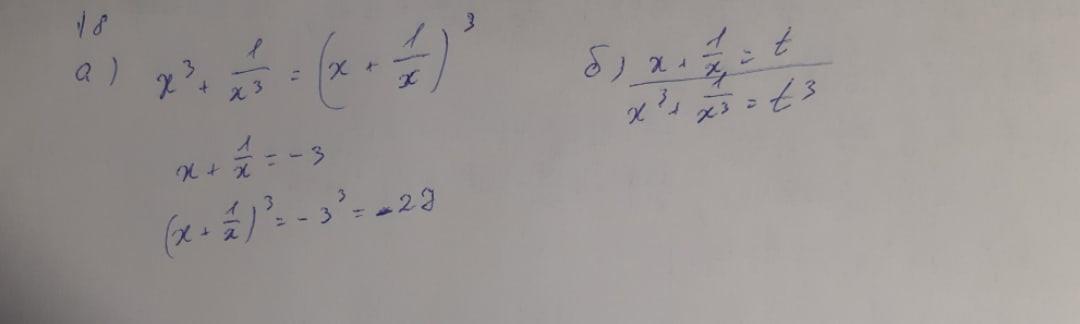 18
а) x³ + 1/x³ = (x + 1/x)³
x + 1/x = -3
(x + 1/x)³ = -3³ = -27
б) x + 1/x = t
x³ + 1/x³ = t³